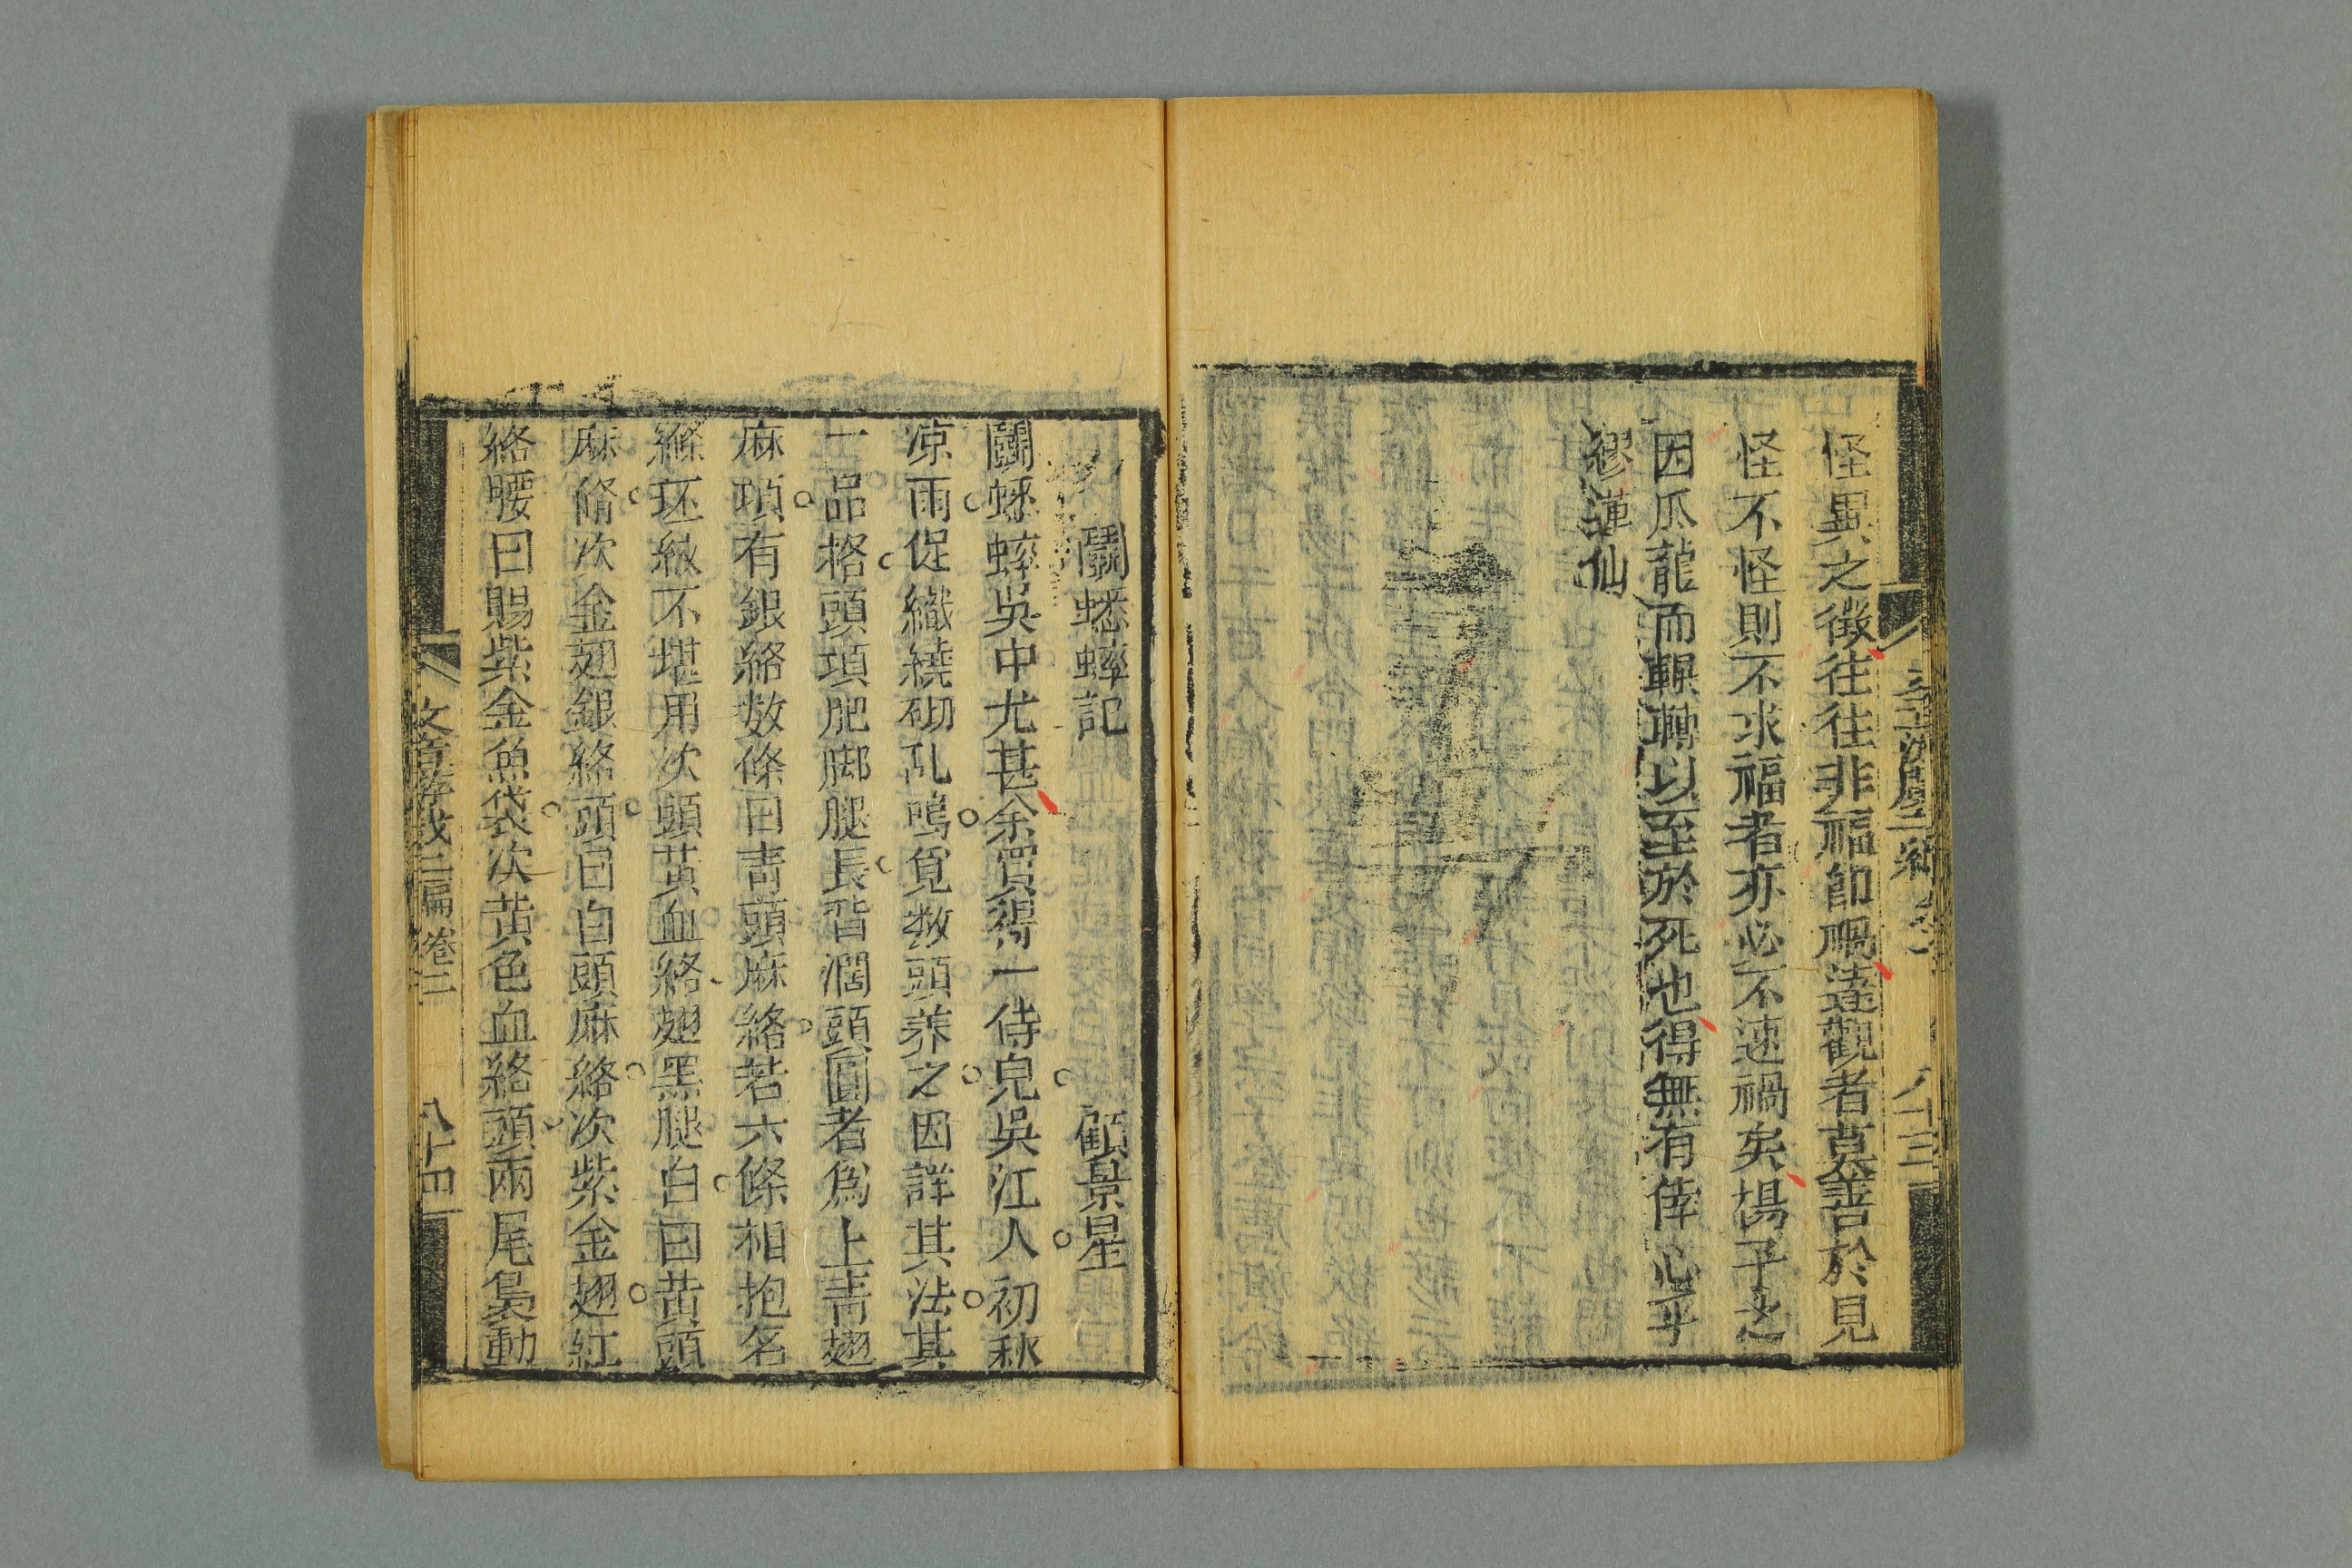 怪異之徵往往非福卽禍達觀者莫善於見
怪不怪則不求福者亦必不速禍矣楊子之
因爪龍而輾轉以至於死也得無有倖心乎
繆蓮仙
八十三
鬭蟋蟀記 顧景星
鬭蟋蟀吳中尤甚余買得一侍皃吳江人初秋
凉雨促織繞砌乱鳴覓数頭养之因詳其法其
一品格頭項肥脚腿長背濶頭圓者爲上青翅
麻項有銀絡数條曰青頭麻絡若六條相抱名
絲环緞不堪用次頭黃血絡翅黑腿白曰黃頭
麻脩次金翅銀絡頭曰白頭麻絡次紫金翅紅
絡腰曰賜紫金魚袋次黃色血絡頭兩尾裊動
文章游戲三編 卷三 八十四